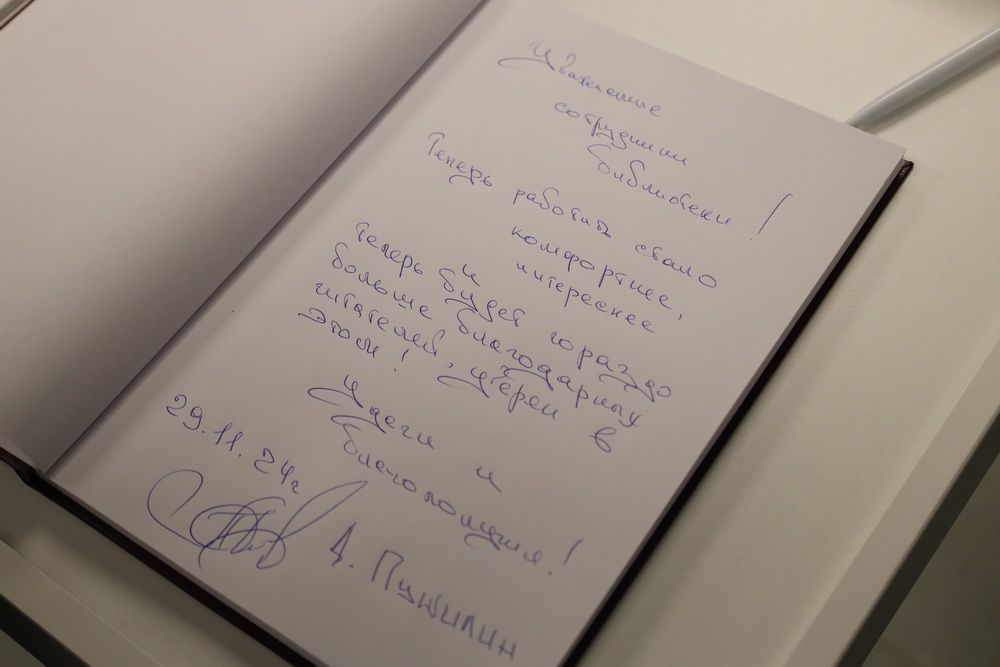 Уважаемые
сотрудники
библиотеки!
Теперь работать стало
комфортнее,
и интереснее
Теперь будет гораздо
больше благодарных
читателей, уверен в
этом!
Удачи и
благополучия!
29.11.24г
Д. Пушилин